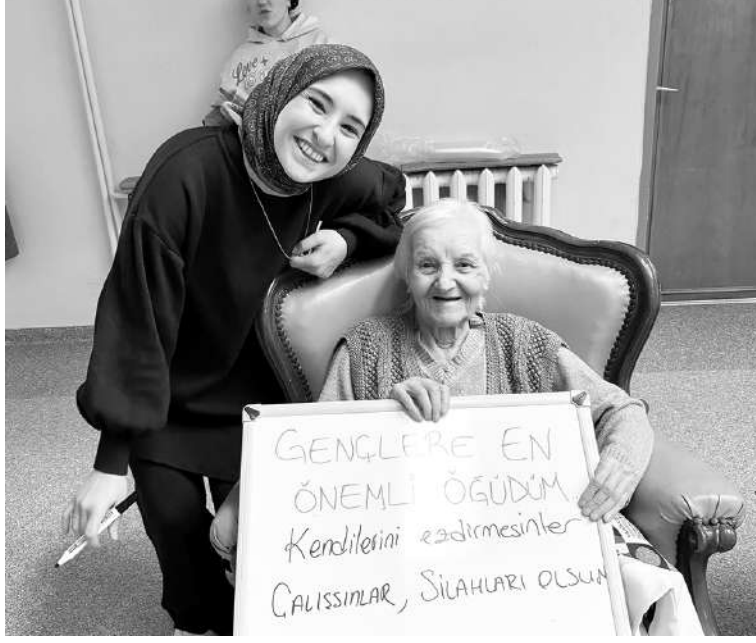 Love +
GENÇLERE EN
ÖNEMLİ ÖĞÜDÜM
Kendilerini ezdirmesinler
ÇALIŞSINLAR, SİLAHLARI OLSUN